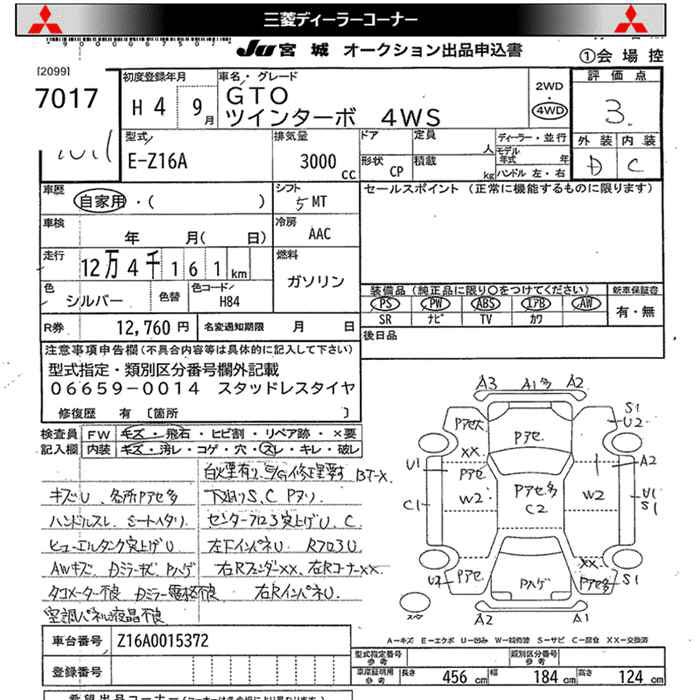 三菱ディーラーコーナー
JU 宮城 オークション出品申込書
①会場控
[2099]
7017
初度登録年月
H 4 9月
車名・グレード
GTO
ツインターボ 4WS
2WD
・
4WD
評価点
3.
外装 内装
D C
型式
E-Z16A
排気量
3000cc
ドア
形状 CP
定員 人
積載 kg
ディーラー・並行
モデル年式 年
ハンドル 左・右
車歴
自家用・( )
シフト
5 MT
セールスポイント (正常に機能するものに限ります)
車検
年 月( 日)
冷房
AAC
走行
12万4千161km
燃料
ガソリン
色
シルバー
色替
色コード
H84
装備品(純正品に限り〇をつけてください)
PS PW ABS エアB AW
SR ナビ TV カワ
新車保証書
有・無
R券 12,760円
名変通知期限 月 日
後日品
注意事項申告欄(不具合内容等は具体的に記入して下さい)
型式指定・類別区分番号欄外記載
06659-0014 スタッドレスタイヤ
修復歴 有 〔箇所 〕
検査員記入欄
FW キズ・飛石・ヒビ割・リペア跡・×要
内装 キズ・汚レ・コゲ・穴・スレ・キレ・破レ
キズU、各所Pアセ多
ハンドルスレ、シートヘタリ
センターフロア突上げU、C
ヒューエルタンク突上げU
左下インパネU
RフロアU
AWキズ
右Rフェンダ××、右Rコーナー××
タコメーター不良
右RインパネU
空調パネル液晶不良
A3 A1多 A2
Pアセ Pアセ S1 U2
×× Pアセ
U1 A2
W2 Pアセ多 C2 W2
C1 U1 S1
U2 Pアセ Pハゲ ×× Pアセ多 S1
A2 A1
A-キズ E-エクボ U-凹み W-補修跡 S-サビ C-腐食 XX-交換済
車台番号 Z16A0015372
登録番号
型式指定番号 参考
類別区分番号 参考
車庫証明用 参考
長さ 456 cm 幅 184 cm 高さ 124 cm